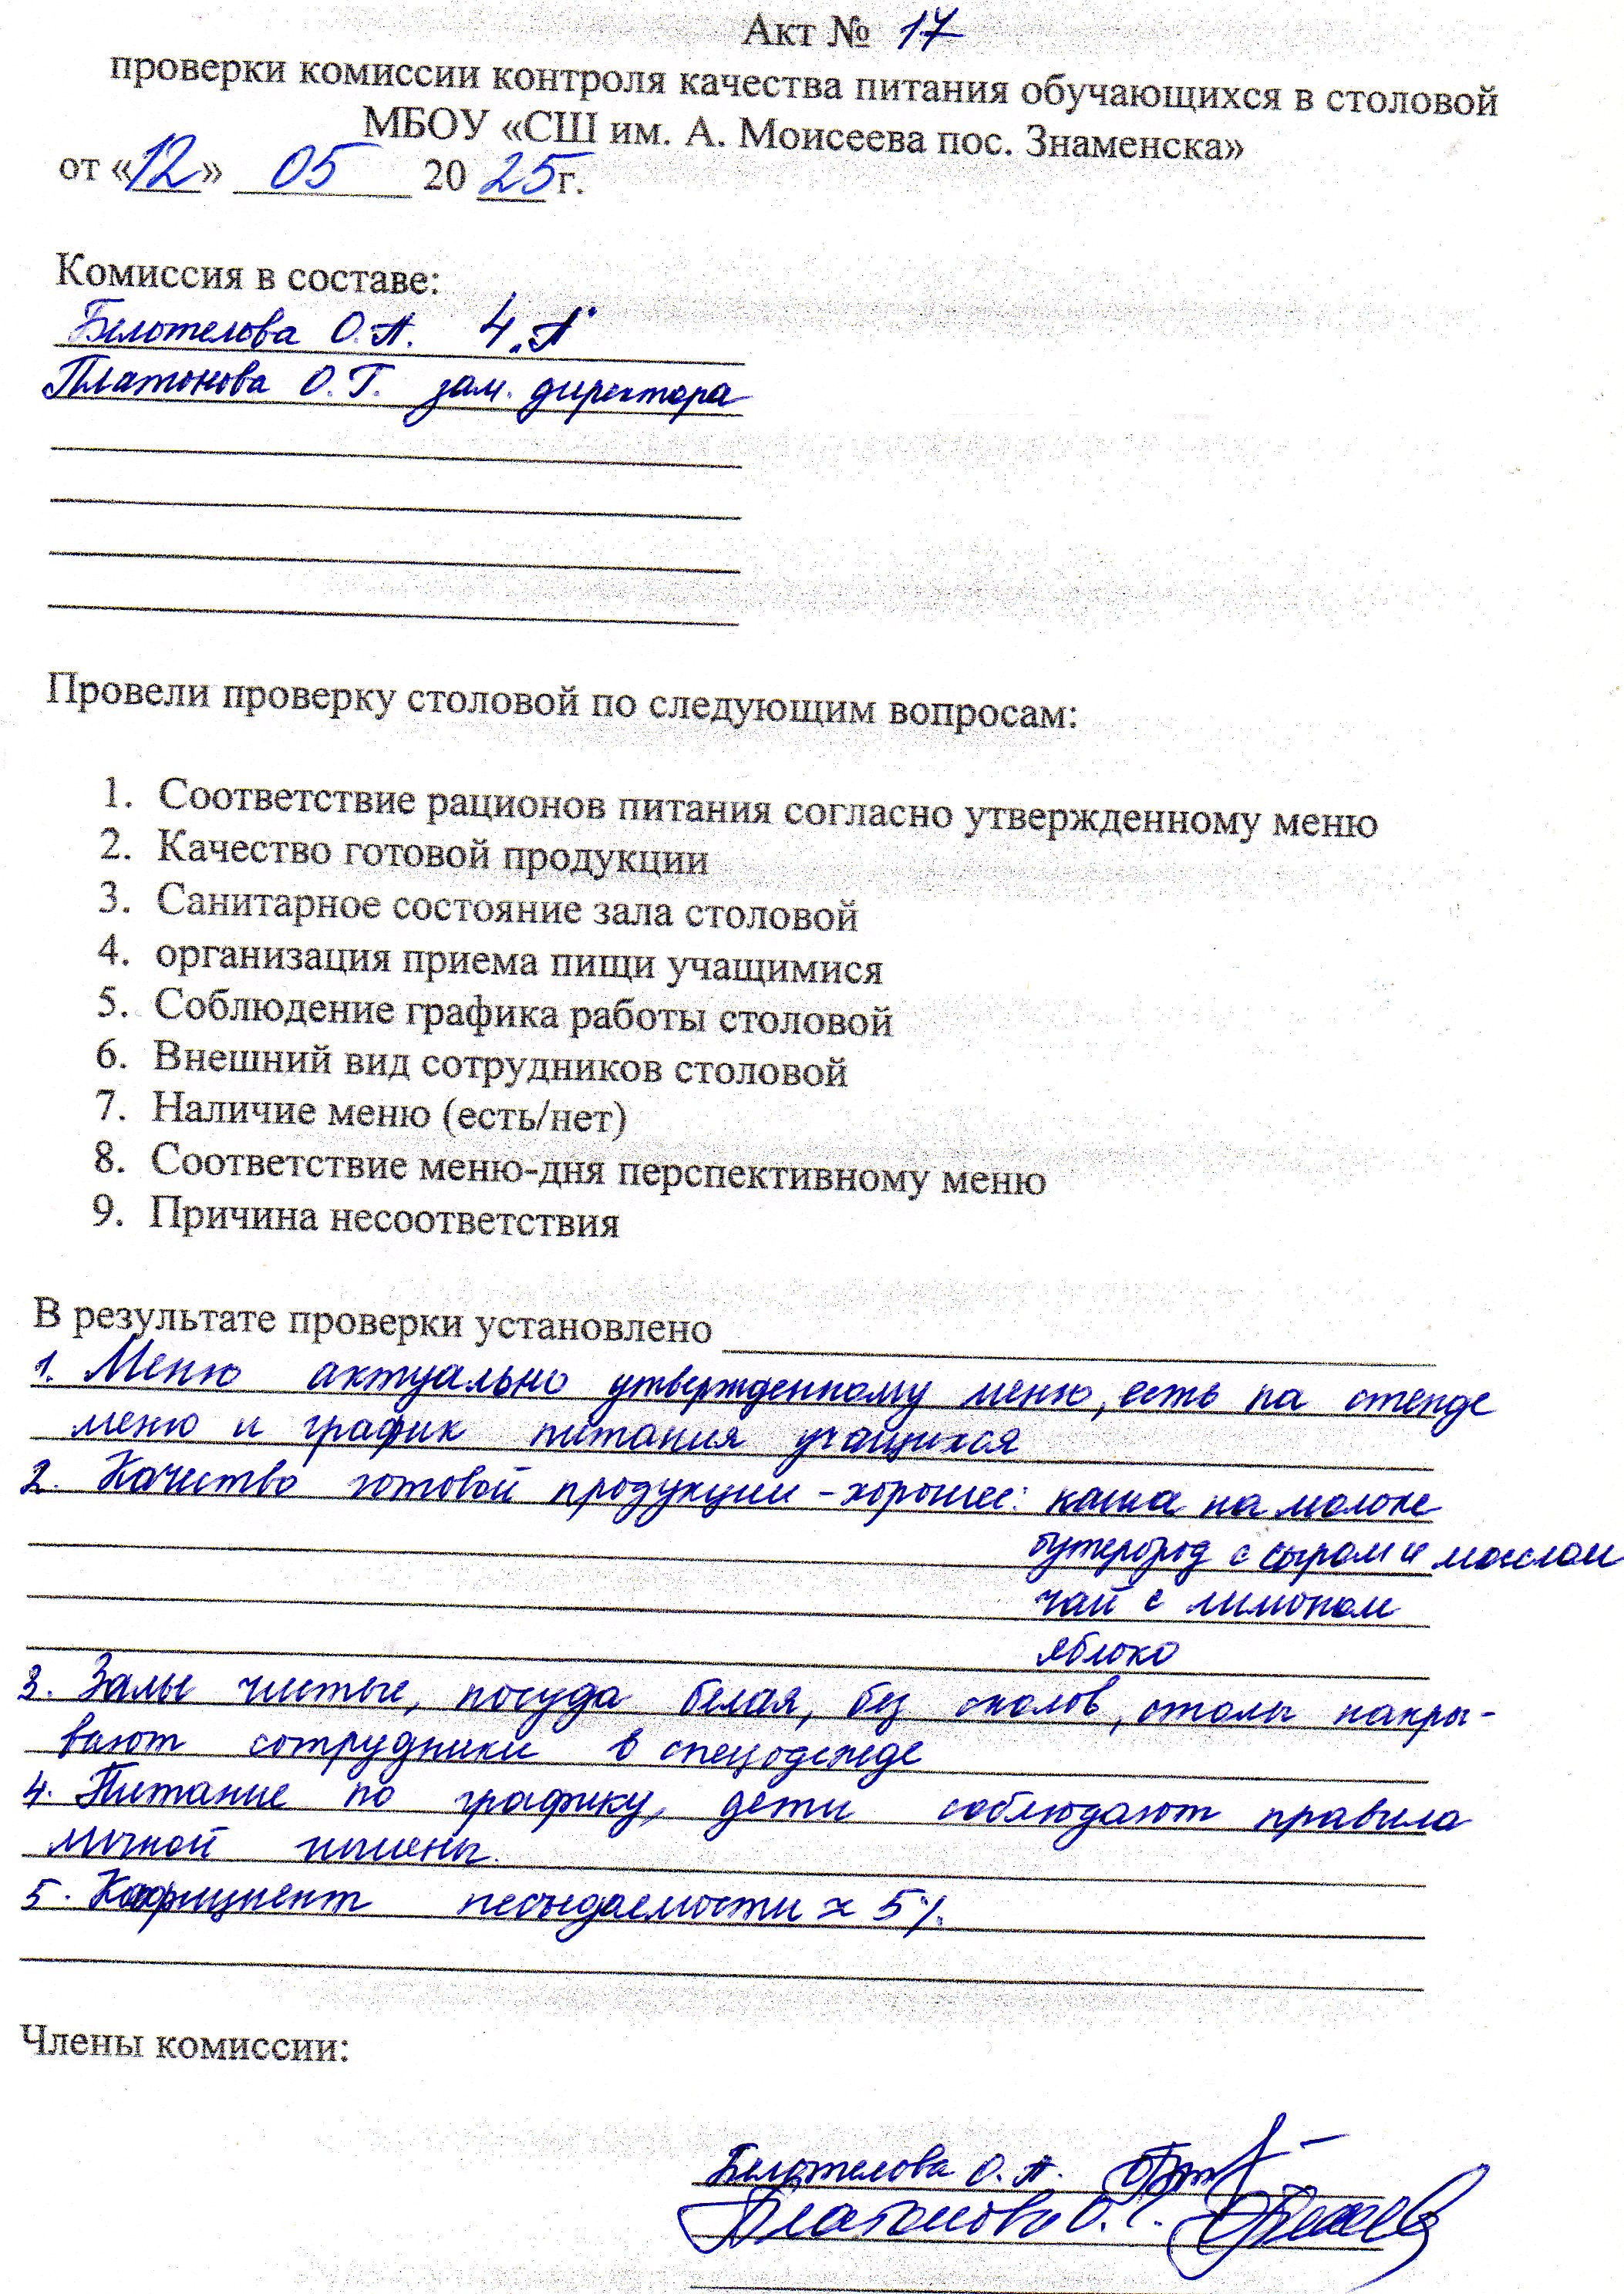 Акт № 17
проверки комиссии контроля качества питания обучающихся в столовой
МБОУ «СШ им. А. Моисеева пос. Знаменска»
от «12» 05 20 25 г.
Комиссия в составе:
Белотелова О.А. 4 „А"
Платонова О.Г. зам. директора
Провели проверку столовой по следующим вопросам:
1. Соответствие рационов питания согласно утвержденному меню
2. Качество готовой продукции
3. Санитарное состояние зала столовой
4. организация приема пищи учащимися
5. Соблюдение графика работы столовой
6. Внешний вид сотрудников столовой
7. Наличие меню (есть/нет)
8. Соответствие меню-дня перспективному меню
9. Причина несоответствия
В результате проверки установлено
1. Меню актуально утвержденному меню, есть на стенде
меню и график питания учащихся
2. Качество готовой продукции - хорошее: каша на молоке
бутерброд с сыром и маслом
чай с лимоном
яблоко
3. Залы чистые, посуда белая, без сколов, столы накры-
вают сотрудники в спецодежде
4. Питание по графику, дети соблюдают правила
личной гигиены.
5. Коэфициент несъедаемости ≈ 5%.
Члены комиссии:
Белотелова О.А.
Платонова О.Г.